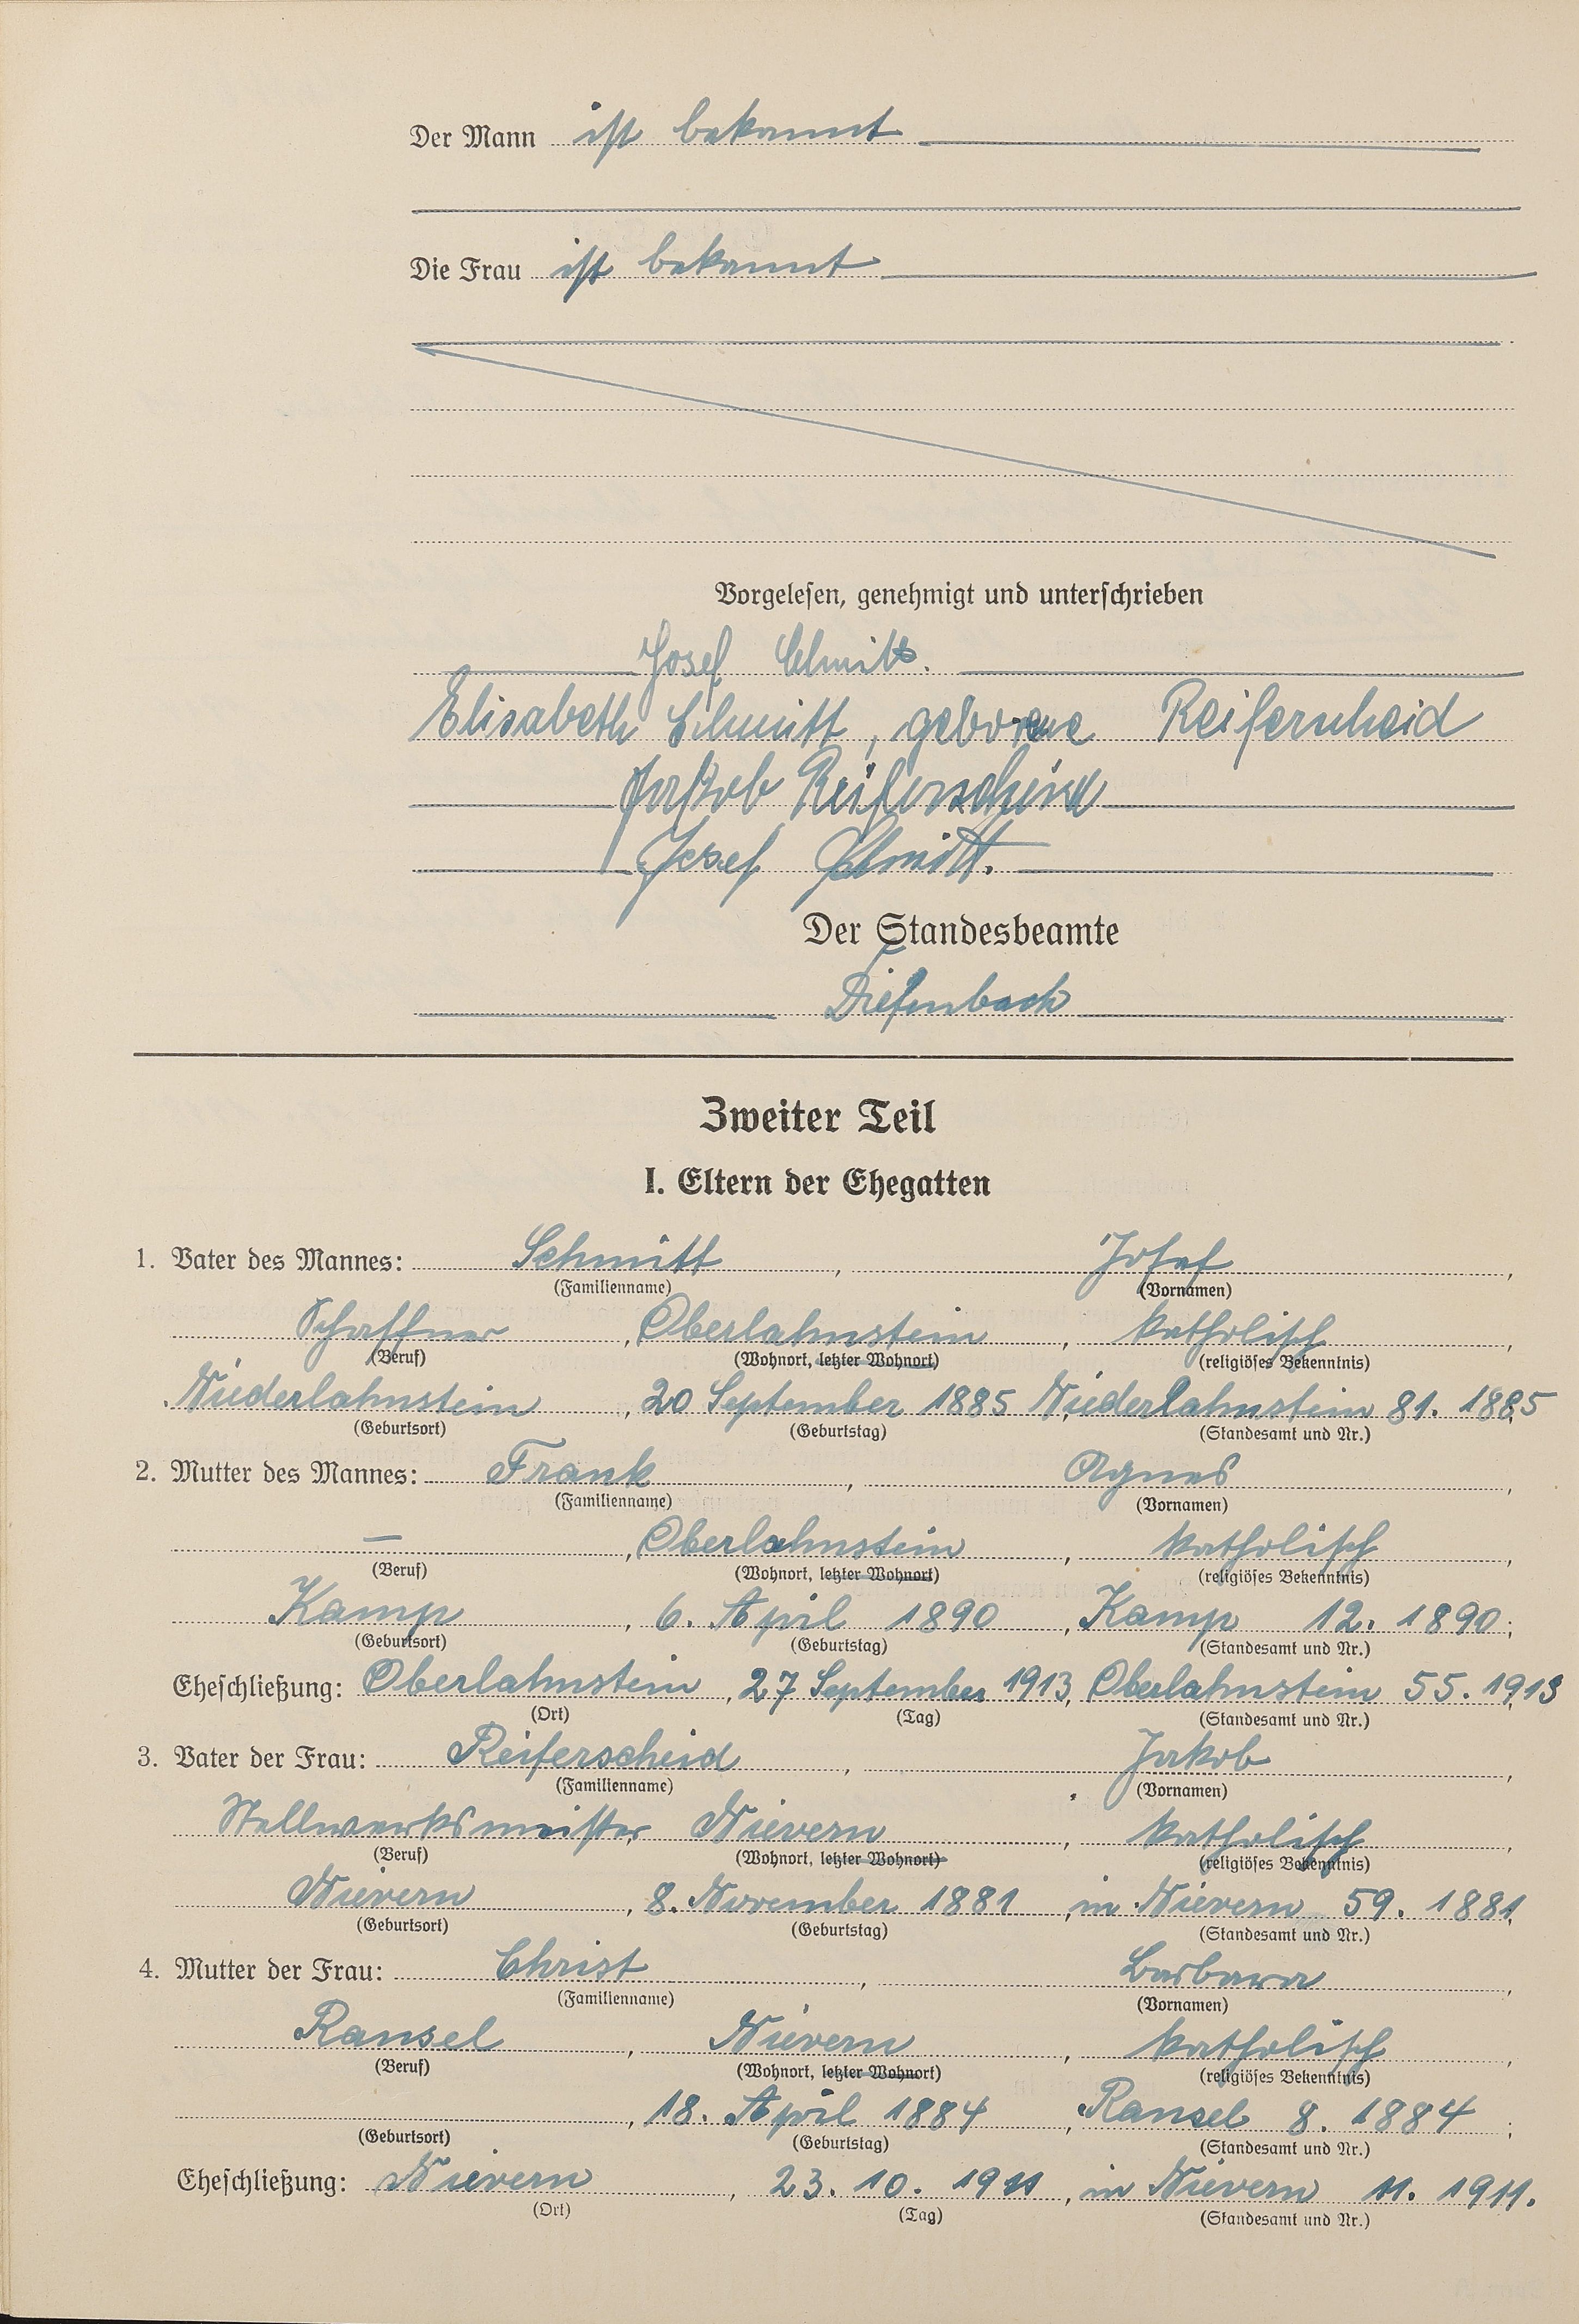 Der Mann ist bekannt
Die Frau ist bekannt
Vorgelesen, genehmigt und unterschrieben
Josef Schmitt.
Elisabeth Schmitt, geborene Reiferscheid
Jakob Reiferscheid
Josef Schmitt.
Der Standesbeamte
Diefenbach
Zweiter Teil
I. Eltern der Ehegatten
1. Vater des Mannes: Schmitt, Josef,
(Familienname) (Vornamen)
Schaffner, Oberlahnstein, katholisch,
(Beruf) (Wohnort, letzter Wohnort) (religiöses Bekenntnis)
Niederlahnstein, 20 September 1885 Niederlahnstein 81. 1885
(Geburtsort) (Geburtstag) (Standesamt und Nr.)
2. Mutter des Mannes: Frank, Agnes,
(Familienname) (Vornamen)
—, Oberlahnstein, katholisch,
(Beruf) (Wohnort, letzter Wohnort) (religiöses Bekenntnis)
Kamp, 6. April 1890, Kamp 12. 1890;
(Geburtsort) (Geburtstag) (Standesamt und Nr.)
Eheschließung: Oberlahnstein, 27 September 1913, Oberlahnstein 55. 1913
(Ort) (Tag) (Standesamt und Nr.)
3. Vater der Frau: Reiferscheid, Jakob,
(Familienname) (Vornamen)
Stellwerksmeister Nievern, katholisch,
(Beruf) (Wohnort, letzter Wohnort) (religiöses Bekenntnis)
Nievern, 8. November 1881, in Nievern 59. 1881,
(Geburtsort) (Geburtstag) (Standesamt und Nr.)
4. Mutter der Frau: Christ, Barbara,
(Familienname) (Vornamen)
Ransel, Nievern, katholisch,
(Beruf) (Wohnort, letzter Wohnort) (religiöses Bekenntnis)
, 18. April 1884, Ransel 8. 1884;
(Geburtsort) (Geburtstag) (Standesamt und Nr.)
Eheschließung: Nievern, 23. 10. 1911, in Nievern 11. 1911.
(Ort) (Tag) (Standesamt und Nr.)